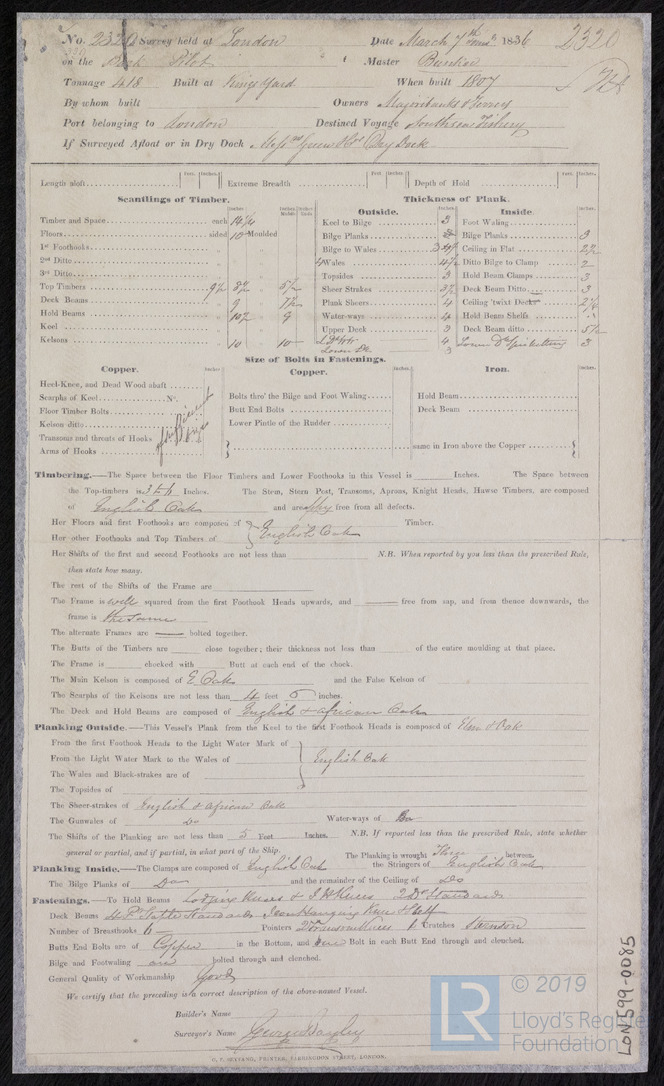 No. 2320 Survey held at London Date March 7th 1836 2320
on the Pilot Master
Tonnage 418 Built at Kings Yard When built 1807
By whom built Owners Majoribanks & Ferrers
Port belonging to London Destined Voyage Southsea Fishery
If Surveyed Afloat or in Dry Dock Green Dry Dock
Length aloft Feet. Inches. Extreme Breadth Feet Inches. Depth of Hold Feet. Inches.
Scantlings of Timber.
Timber and Space each
Floors sided 10 Moulded
1st Foothooks
2nd Ditto
3rd Ditto
Top Timbers 9½ 8½ 5½
Deck Beams 9 7½
Hold Beams 10½ 9
Keel
Kelsons 10 10
Thickness of Plank.
Outside.
Keel to Bilge 3
Bilge Planks
Bilge to Wales
Wales 4½
Topsides 3
Sheer Strakes 3½
Plank Sheers 4
Water-ways 4
Upper Deck 3
Inside.
Foot Waling
Bilge Planks 3
Ceiling in Flat 2½
Ditto Bilge to Clamp 2
Hold Beam Clamps 3
Deck Beam Ditto 3
Ceiling 'twixt Decks 2¼
Hold Beam Shelfs "
Deck Beam ditto 5½
Lower Do Spirketting 3
Size of Bolts in Fastenings.
Copper.
Heel-Knee, and Dead Wood abaft
Scarphs of Keel No.
Floor Timber Bolts
Kelson ditto
Transoms and throats of Hooks
Arms of Hooks
of sufficient Size
Copper.
Bolts thro' the Bilge and Foot Waling
Butt End Bolts
Lower Pintle of the Rudder
Iron.
Hold Beam
Deck Beam
same in Iron above the Copper
Timbering.—The Space between the Floor Timbers and Lower Foothooks in this Vessel is Inches. The Space between
the Top-timbers is 3 to 4 Inches. The Stem, Stern Post, Transoms, Aprons, Knight Heads, Hawse Timbers, are composed
of English Oak and are free from all defects.
Her Floors and first Foothooks are composed of Timber.
Her other Foothooks and Top Timbers of English Oak
Her Shifts of the first and second Foothooks are not less than N.B. When reported by you less than the prescribed Rule,
then state how many.
The rest of the Shifts of the Frame are
The Frame is well squared from the first Foothook Heads upwards, and free from sap, and from thence downwards, the
frame is the same
The alternate Frames are bolted together.
The Butts of the Timbers are close together; their thickness not less than of the entire moulding at that place.
The Frame is chocked with Butt at each end of the chock.
The Main Kelson is composed of E Oak and the False Kelson of
The Scarphs of the Kelsons are not less than 4 feet 5 inches.
The Deck and Hold Beams are composed of English & African Oak
Planking Outside.—This Vessel's Plank from the Keel to the first Foothook Heads is composed of Elm & Oak
From the first Foothook Heads to the Light Water Mark of
From the Light Water Mark to the Wales of English Oak
The Wales and Black-strakes are of
The Topsides of
The Sheer-strakes of English & African Oak
The Gunwales of Do Water-ways of Do
The Shifts of the Planking are not less than 5 Feet Inches. N.B. If reported less than the prescribed Rule, state whether
general or partial, and if partial, in what part of the Ship. The Planking is wrought Three between.
Planking Inside.—The Clamps are composed of English Oak the Stringers of English Oak
The Bilge Planks of Do and the remainder of the Ceiling of Do
Fastenings.—To Hold Beams Lodging Knees & I H Knees 2 Do Standards
Deck Beams 4 Pr Standards Iron Hanging Knees & Shelf
Number of Breasthooks 6 Pointers 2 Transom Knees Crutches Sternson
Butts End Bolts are of Copper in the Bottom, and one Bolt in each Butt End through and clenched.
Bilge and Footwaling are bolted through and clenched.
General Quality of Workmanship Good
We certify that the preceding is a correct description of the above-named Vessel.
Builder's Name
Surveyor's Name George Bayley
C. F. SEYFANG, PRINTER, FARRINGDON STREET, LONDON.
LR © 2019
Lloyd's Register
Foundation
LON599-0085